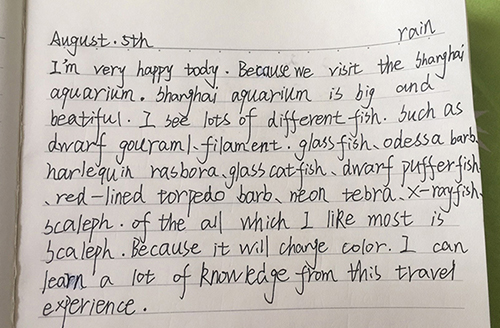 August. 5th rain
I'm very happy tody. Because we visit the Shanghai
aquarium. Shanghai aquarium is big and
beatiful. I see lots of different fish. Such as
dwarf gouraml.filament. glassfish、odessa barb、
harlequin rasbora、glass catfish、dwarf pufferfish
、red-lined torpedo barb、neon tebra、x-rayfish、
scaleph. of the all which I like most is
scaleph. Because it will change color. I can
learn a lot of knowledge from this travel
experience.